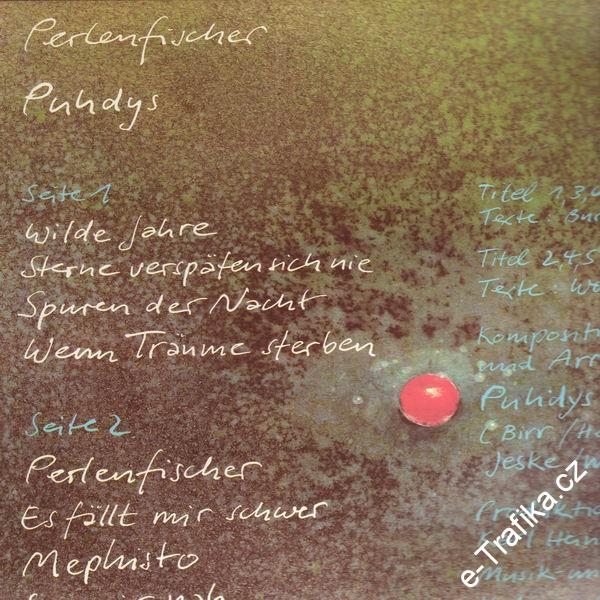 Perlenfischer
Puhdys
Seite 1
Wilde Jahre
Sterne verspäten sich nie
Spuren der Nacht
Wenn Träume sterben
Seite 2
Perlenfischer
Es fällt mir schwer
Mephisto
Titel 1,3,
Texte: Bur
Titel 2,4,5
Texte: Wo
Kompositi
und Arr
Puhdys
(Birr / Ha
Jeske /
Musik-un
e-Trafika.cz